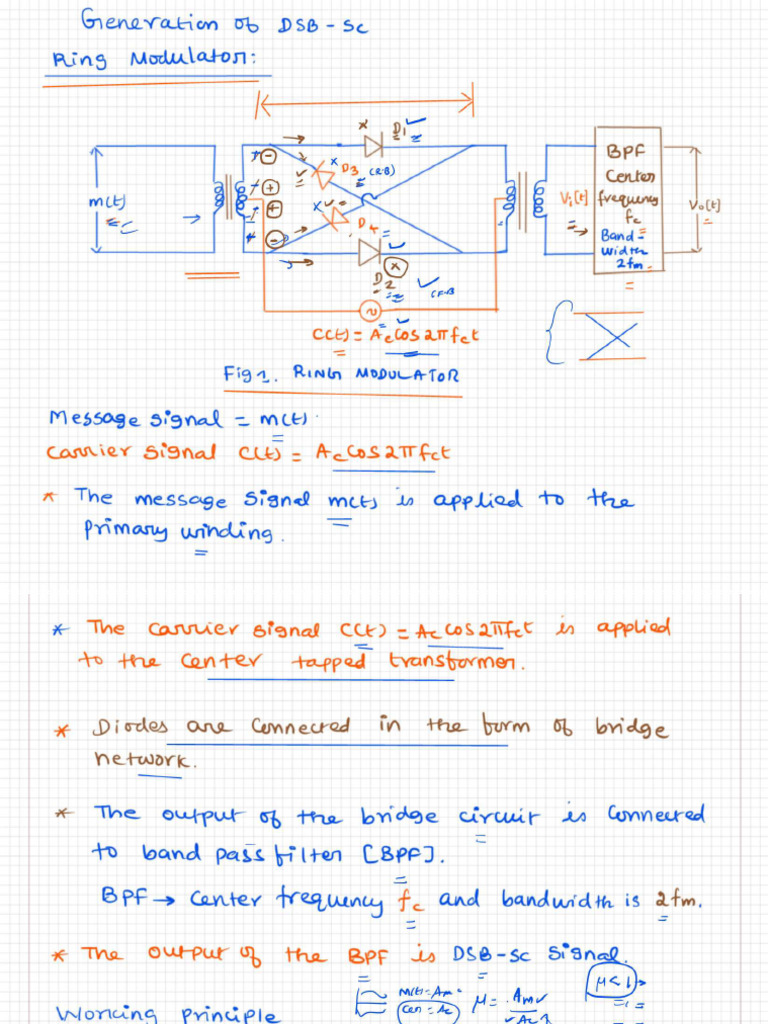 Generation of DSB-SC
Ring Modulator:
D1
D3 (R.B)
D4
D2
(F.B
m(t)
Vi[t]
BPF
Center
frequency
fc
Band=
width
2fm.
Vo[t]
C(t) = Ac Cos 2πfct
Fig 1. RING MODULATOR
Message Signal = m(t).
Carrier Signal C(t) = Ac Cos 2πfct
* The message Signal m(t) is applied to the
primary winding.
* The Carrier Signal C(t) = Ac Cos 2πfct is applied
to the Center tapped transformer.
* Diodes are Connected in the form of bridge
network.
* The output of the bridge circuit is Connected
to band pass filter [BPF].
BPF → Center frequency fc and bandwidth is 2fm.
* The output of the BPF is DSB-SC Signal.
μ<1
m(t)=Am
μ = Am
Ac
Working principle